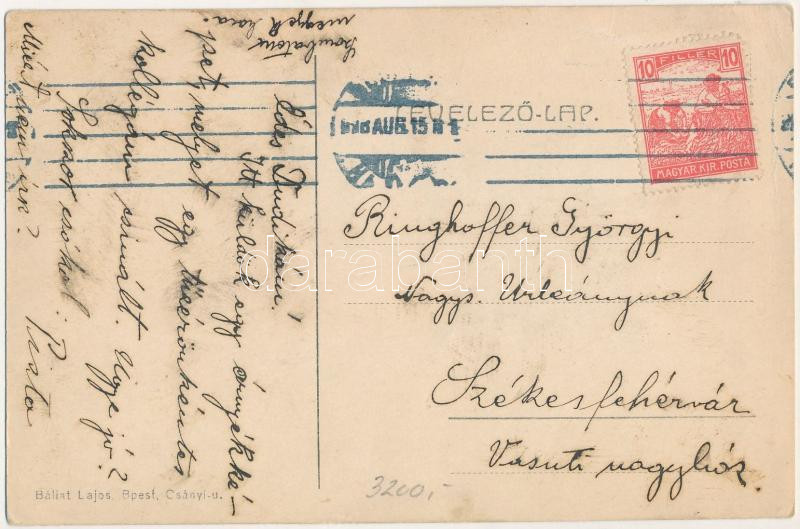 Szombaton
megyek haza.
Édes Dudikám!
Itt küldök egy árnyékké-
pet, melyet egy tüzérönkéntes
kollégám csinált. Ugye jó?
Sokszor csókol:
Pista
Miért nem ír?
LEVELEZŐ-LAP.
918 AUG. 15
10 FILLÉR 10
MAGYAR KIR. POSTA
Ringhoffer Györgyi
Nagys. Urleánynak
Székesfehérvár
Vasuti nagyház.
darabanth
Bálint Lajos, Bpest, Csányi-u.
3200,-